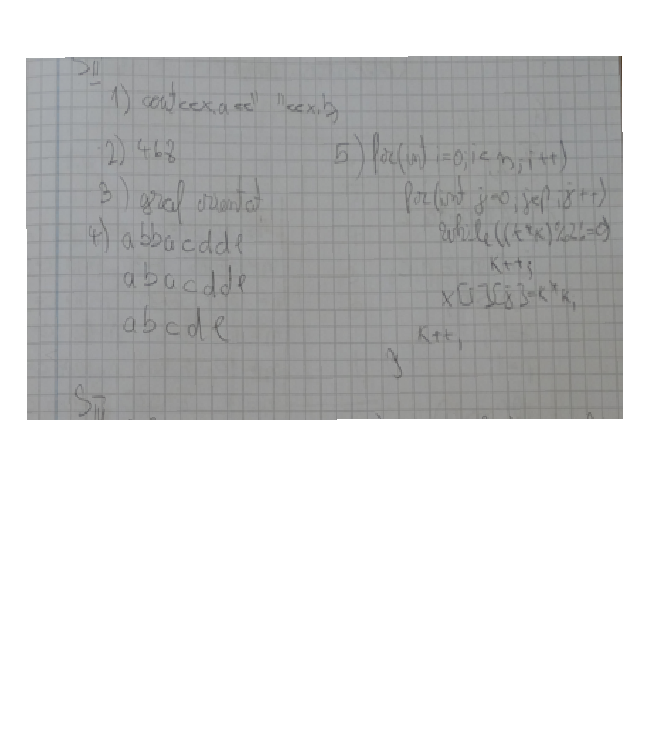 SII
1) cout<<x.a<<" "<<x.b
2) 468
3) graf orientat
4) abbacdde
abacdde
abcde
5) for(int i=0;i<n;i++)
for(int j=0;j<p;j++)
while((k*k)%2!=0)
k++;
x[i][j]=k*k;
k++;
}
SIII